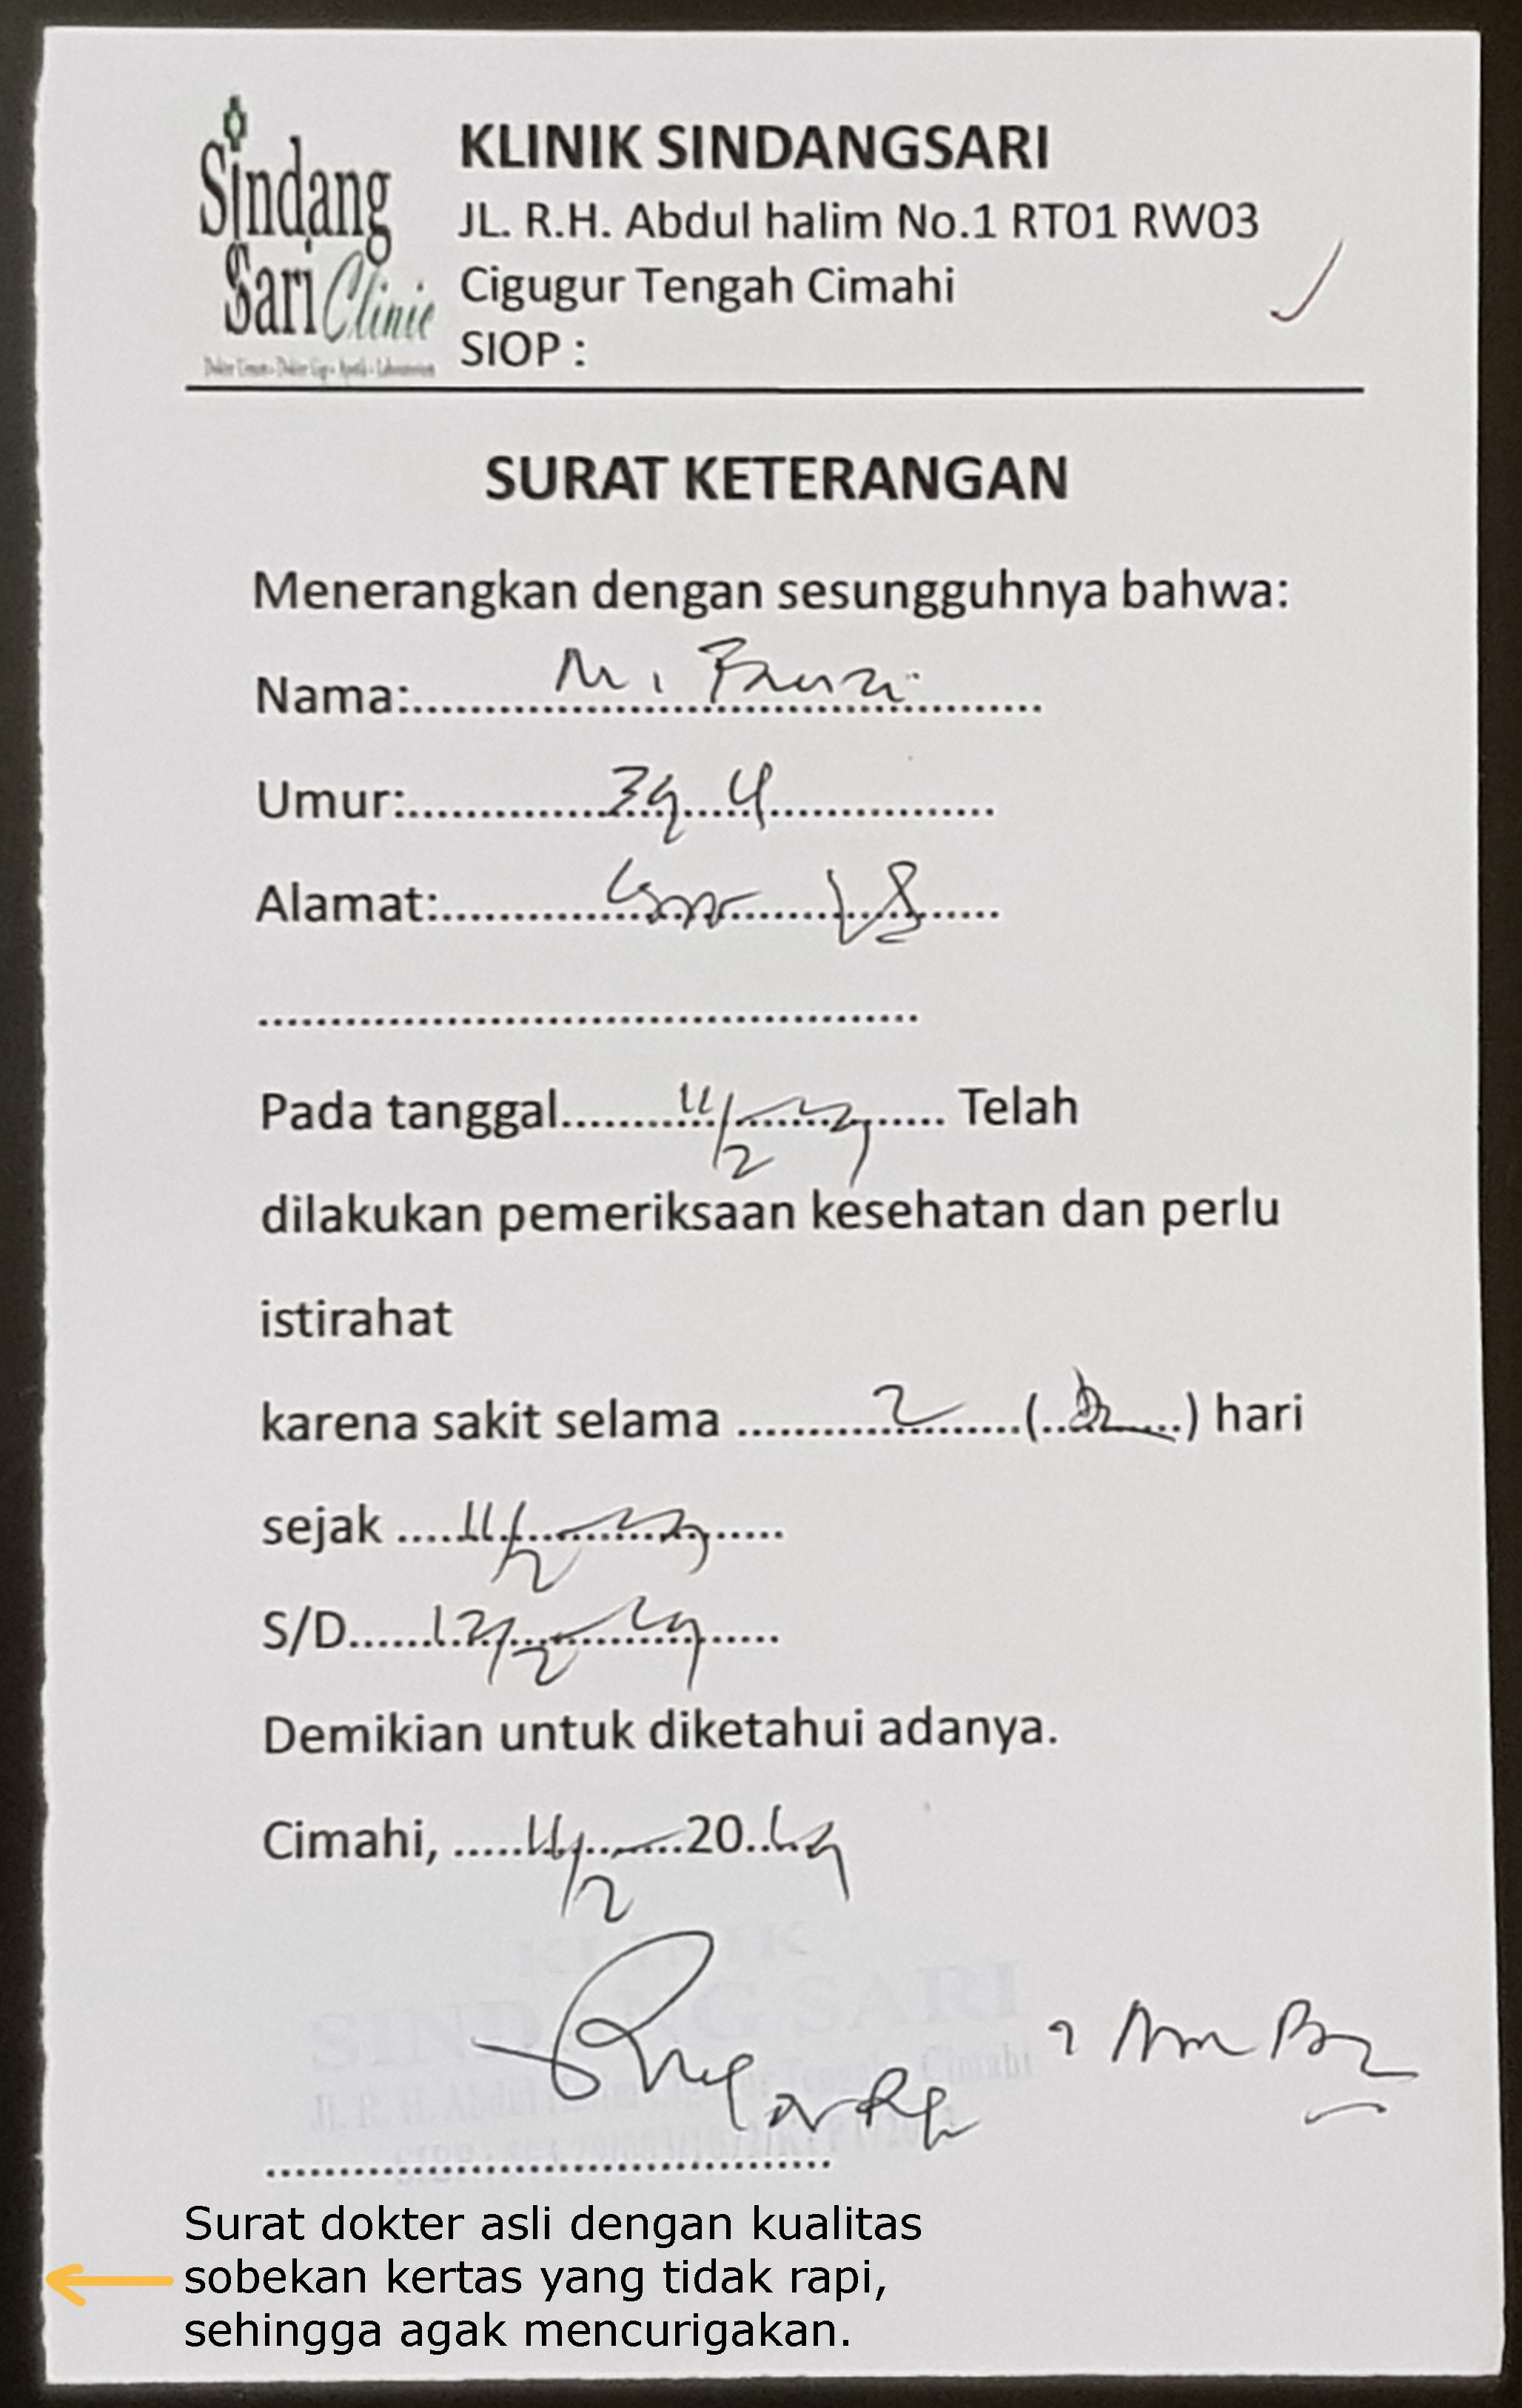 Sindang
Sari Clinic
Dokter Umum - Dokter Gigi - Apotik - Laboratorium
KLINIK SINDANGSARI
JL. R.H. Abdul halim No.1 RT01 RW03
Cigugur Tengah Cimahi
SIOP :
SURAT KETERANGAN
Menerangkan dengan sesungguhnya bahwa:
Nama: M. Fauzi
Umur: 39
Alamat:
Pada tanggal 11/2 Telah
dilakukan pemeriksaan kesehatan dan perlu
istirahat
karena sakit selama 2 ( ) hari
sejak 11/2
S/D 12/2
Demikian untuk diketahui adanya.
Cimahi, 11/2 20
KLINIK
SINDANG SARI
Surat dokter asli dengan kualitas
sobekan kertas yang tidak rapi,
sehingga agak mencurigakan.